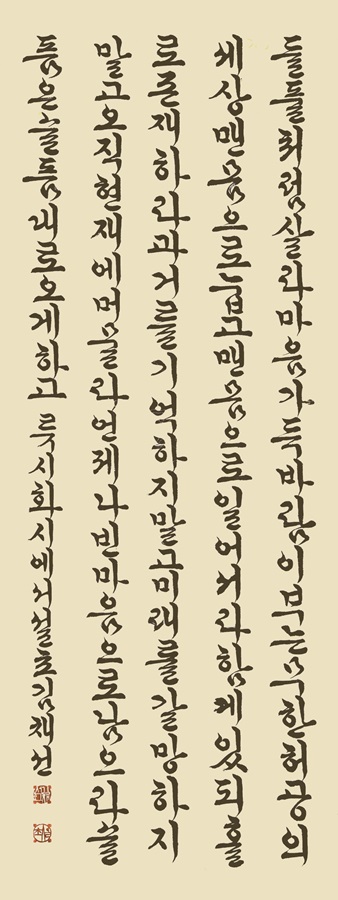 들풀처럼살라마음가득바람이부는무한허공의
세상맨몸으로눕고맨몸으로일어서라함께있되홀
로존재하라과거를기억하지말고미래를갈망하지
말고오직현재에머물라언제나빈마음으로남으라슬
픔은슬픔대로오게하고 류시화시에서